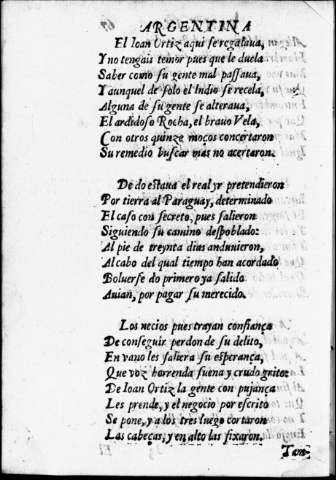 ARGENTINA
El Ioan Ortiz aqui se regalaua,
Y no tengais temor pues que le duela
Saber como su gente mal passaua,
Y aunquel de solo el Indio se recela,
Alguna de su gente se alteraua,
El ardidoso Rocha, el brauo Vela,
Con otros quinze moços concertaron
Su remedio buscar mas no acertaron.
De do estaua el real yr pretendieron
Por tierra al Paraguay, determinado
El caso con secreto, pues salieron
Siguiendo su camino despoblado:
Al pie de treynta dias anduuieron,
Al cabo del qual tiempo han acordado
Boluerse do primero ya salido
Auian, por pagar su merecido.
Los necios pues trayan confiança
De conseguir perdon de su delito,
En vano les saliera su esperança,
Que voz horrenda suena y crudo grito:
De Ioan Ortiz la gente con pujança
Les prende, y el negocio por escrito
Se pone, y a los tres luego cortaron
Las cabeças, y en alto las fixaron.
Tam